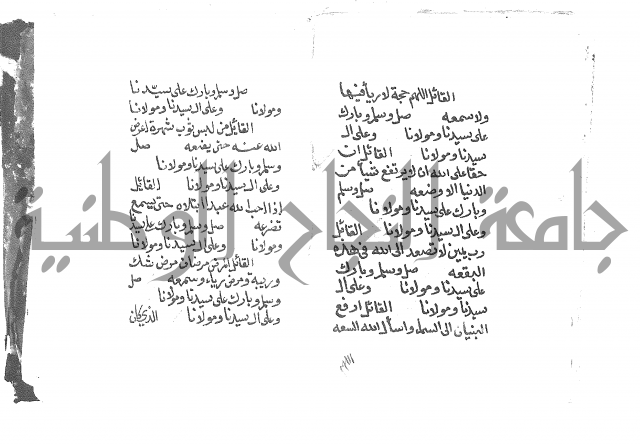 القائل اللهم حجة لا رياء فيها
ولا سمعه صل وسلم وبارك
على سيدنا ومولانا وعلى ال
سيدنا ومولانا القائل ان
حقا على الله ان لا يرتفع شيأ من
الدنيا الا وضعه صل وسلم
وبارك على سيدنا ومولانا
وعلى ال سيدنا ومولانا القائل
رب يمين لا تصعد الى الله في هذه
البقعه صل وسلم وبارك
على سيدنا ومولانا وعلى ال
سيدنا ومولانا القائل ارفع
البنيان الى السماء واسأل الله السعه
صل وسلم وبارك على سيدنا
ومولانا وعلى ال سيدنا ومولانا
القائل من لبس ثوب شهرة اعرض
الله عنه حتى يضعه صل
وسلم وبارك على سيدنا ومولانا
وعلى ال سيدنا ومولانا القائل
اذا احب الله عبدا ابتلاه حتى يسمع
تضرعه صل وسلم وبارك على سيدنا
ومولانا وعلى ال سيدنا ومولانا
القائل المرض مرضان مرض شك
وريبة ومرض رياء وسمعه صل
وسلم وبارك على سيدنا ومولانا
وعلى ال سيدنا ومولانا الذي كان
جامعة النجاح الوطنية